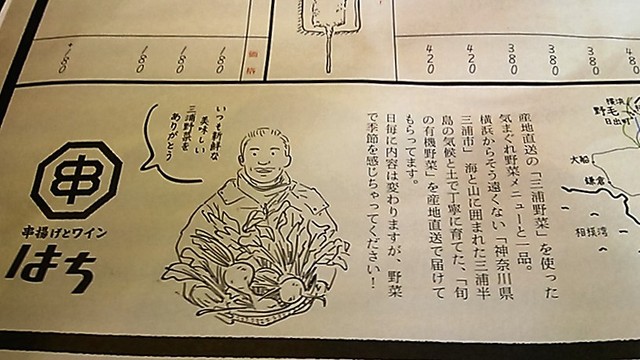 価格
180
180
180
180
480
380
380
380
420
420
産地直送の「三浦野菜」を使った
気まぐれ野菜メニューと一品。
横浜からそう遠くない「神奈川県
三浦市」海と山に囲まれた三浦半
島の気候と土で丁寧に育てた、「旬
の有機野菜」を産地直送で届けて
もらってます。
日毎に内容は変わりますが、野菜
で季節を感じちゃってください！
いつも新鮮な
美味しい
三浦野菜を
ありがとう
串
串揚げとワイン
はち
横浜
野毛
日出町
大船
鎌倉
相模湾